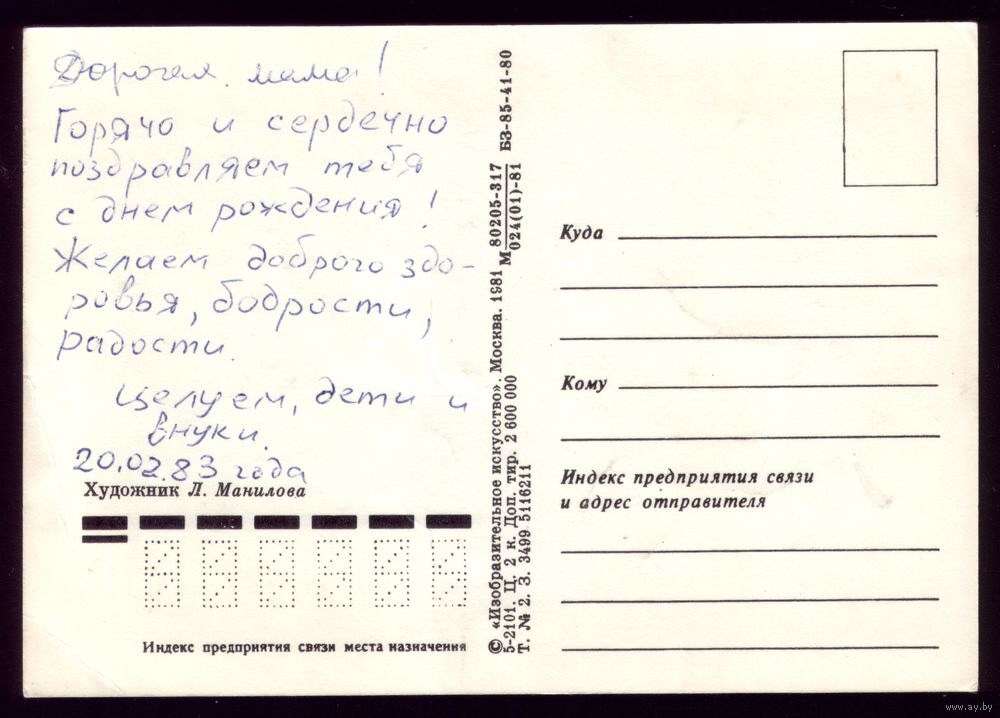 Дорогая мама!
Горячо и сердечно
поздравляем тебя
с днем рождения!
Желаем доброго здо-
ровья, бодрости,
радости.
Целуем, дети и
внуки.
20.02.83 года
Художник Л. Манилова
Индекс предприятия связи места назначения
© «Изобразительное искусство». Москва. 1981 М 80205-317 БЗ-85-41-80
024(01)-81
5-2101. Ц. 2 к. Доп. тир. 2 600 000
Т. № 2. З. 3499 5116211
Куда
Кому
Индекс предприятия связи
и адрес отправителя
www.ay.by